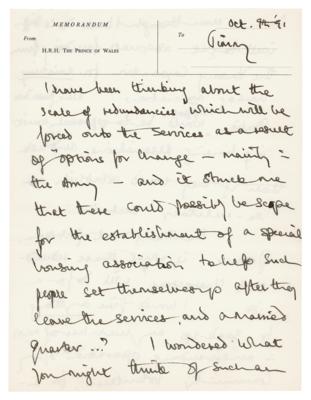 MEMORANDUM
From
H.R.H. THE PRINCE OF WALES
To
Oct. 9th '91
I have been thinking about the
scale of redundancies which will be
forced onto the Services as a result
of "options for change – mainly in
the Army – and it struck me
that there could possibly be scope
for the establishment of a special
housing association to help such
people set themselves up after they
leave the services, and a married
quarter...? I wondered what
you might think of such an